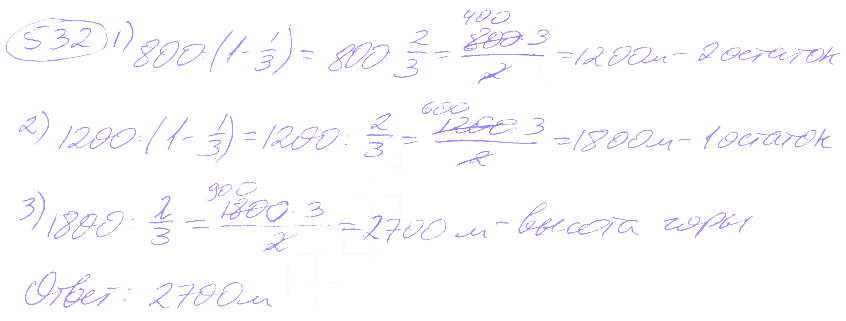 532 1) 800:(1-1/3)=800:2/3=(800·3)/2=1200м-2 остаток 400
2) 1200:(1-1/3)=1200:2/3=(1200·3)/2=1800м-1 остаток 600
3) 1800:2/3=(1800·3)/2=2700м-высота горы 900
Ответ: 2700м